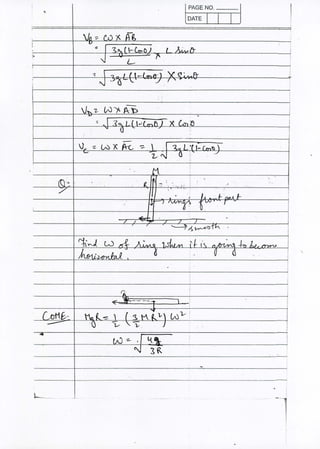 PAGE NO.
DATE
V_B = ω × AB
= √(3g(1-Cosθ)/L) × L Sinθ
= √(3gL(1-Cosθ)) × Sinθ
V_D = ω × AD
= √(3gL(1-Cosθ)) × Cosθ
V_C = ω × AC = 1/2 √(3gL(1-Cosθ))
M
Q:-
R
→ rings front part
→ smooth
Find ω of ring when it is going to become
horizontal.
COME: MgR = 1/2 (3/2 MR²) ω²
ω = √(4g/3R)